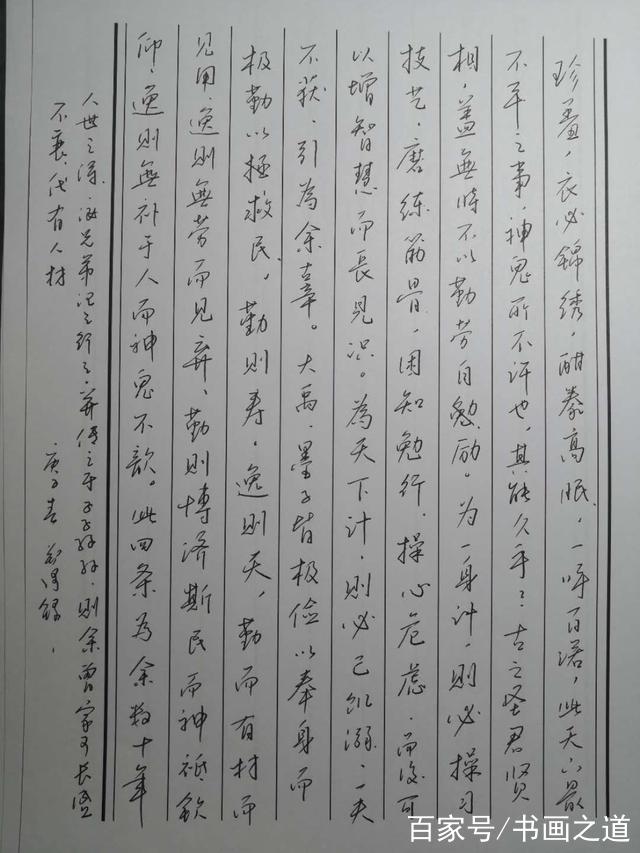 珍羞，衣必錦绣，酣豢高眠，一呼百诺，此天下最
不平之事，神鬼所不许也，其能久乎？古之圣君贤
相，盖無時不以勤劳自勉励。为一身计，则必操习
技艺，磨练筋骨，困知勉行，操心危虑，而後可
以增智慧而長見识。為天下计，则必己饥溺，一夫
不获，引為余辜。大禹、墨子皆极俭以奉身而
极勤以拯救民，勤则寿，逸则夭，勤而有材而
见用，逸则無劳而见弃，勤则博济斯民而神祇钦
仰，逸则無补于人而神鬼不歆。此四条为余数十年
人世之得，汝兄弟记之行之，并传之于子子孙孙，则余曾家可长盛
不衰，代有人材
庚子春
百家号/书画之道